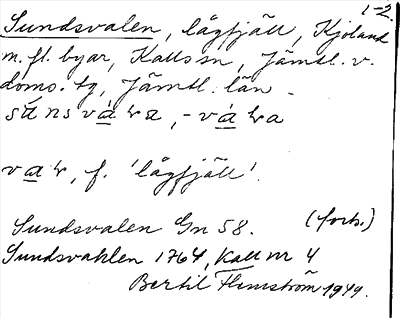 1-2.
Sundsvalen, lågfjäll, Kjoland
m. fl. byar, Kalls sn, Jämtl. v.
doms. tg, Jämtl. län.
vał, f. 'lågfjäll'.
Sundsvalen Gn 58. (forts.)
Sundsvahlen 1764, Kall nr 4
Bertil Flemström 1949.